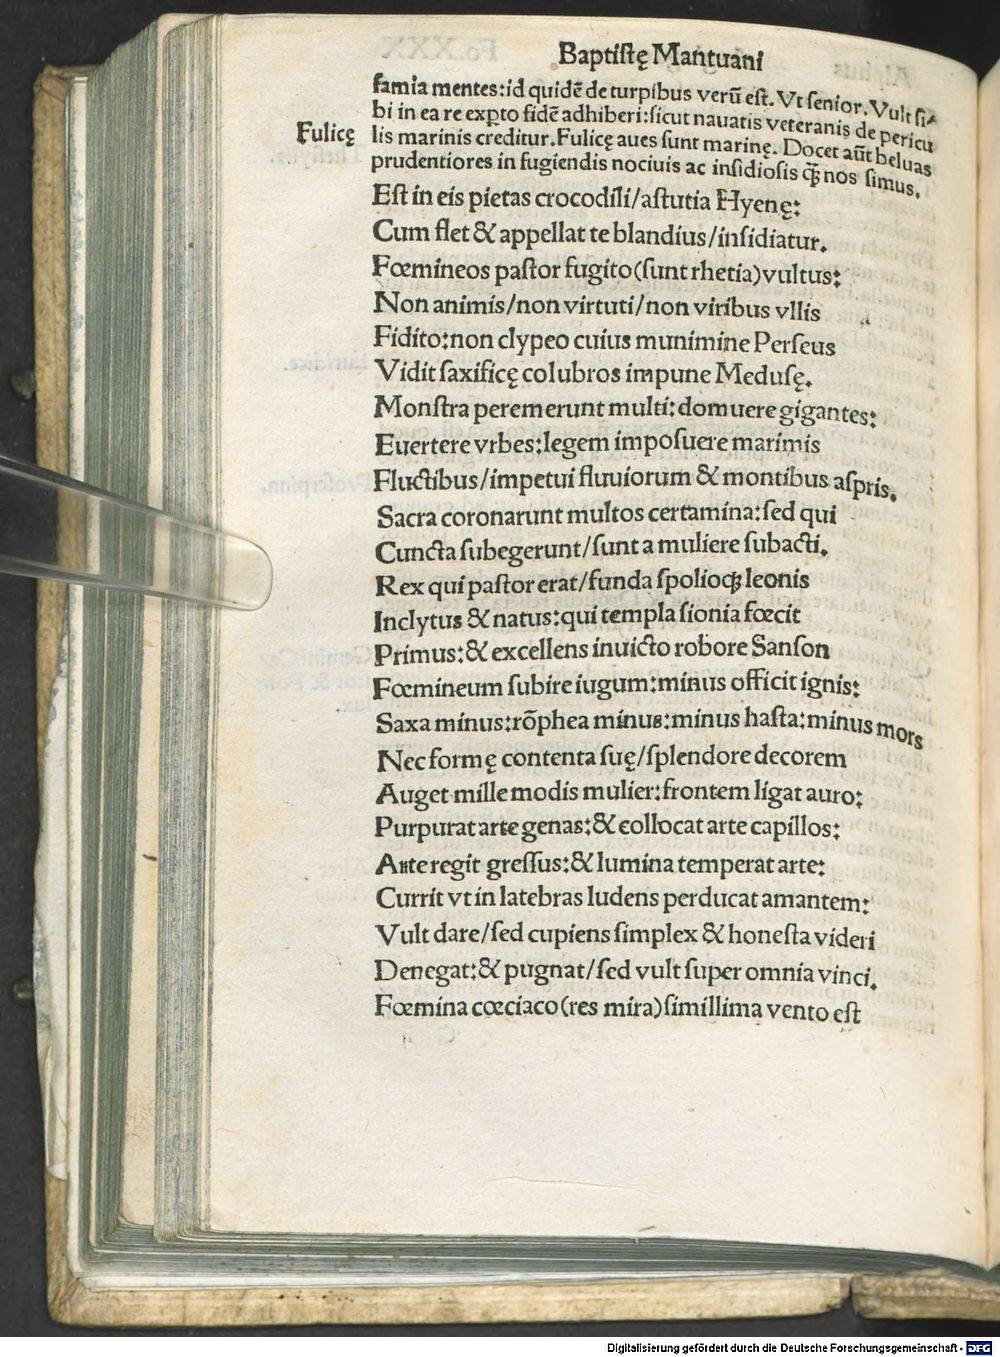 Baptistę Mantuani
famia mentes:id quidē de turpibus verū est. Vt senior. Vult si⸗
bi in ea re expto fidē adhiberi:sicut nauatis veteranis de pericu
Fulicę
lis marinis creditur. Fulicę aues sunt marinę. Docet aūt beluas
prudentiores in fugiendis nociuis ac insidiosis ꝙ̃ nos simus.
Est in eis pietas crocodili/astutia Hyenę:
Cum flet & appellat te blandius/insidiatur.
Fœmineos pastor fugito(sunt rhetia)vultus:
Non animis/non virtuti/non viribus vllis
Fidito:non clypeo cuius munimine Perseus
Vidit saxificę colubros impune Medusę.
Monstra peremerunt multi:domuere gigantes:
Euertere vrbes:legem imposuere marimis
Fluctibus/impetui fluuiorum & montibus aspris.
Sacra coronarunt multos certamina:sed qui
Cuncta subegerunt/sunt a muliere subacti.
Rex qui pastor erat/funda spolioqꝫ leonis
Inclytus & natus:qui templa sionia fœcit
Primus:& excellens inuicto robore Sanson
Fœmineum subire iugum:minus officit ignis:
Saxa minus:rōphea minus:minus hasta:minus mors
Nec formę contenta suę/splendore decorem
Auget mille modis mulier:frontem ligat auro:
Purpurat arte genas:& collocat arte capillos:
Arte regit gressus:& lumina temperat arte:
Currit vt in latebras ludens perducat amantem:
Vult dare/sed cupiens simplex & honesta videri
Denegat:& pugnat/sed vult super omnia vinci.
Fœmina cœciaco(res mira)simillima vento est
Digitalisierung gefördert durch die Deutsche Forschungsgemeinschaft - DFG